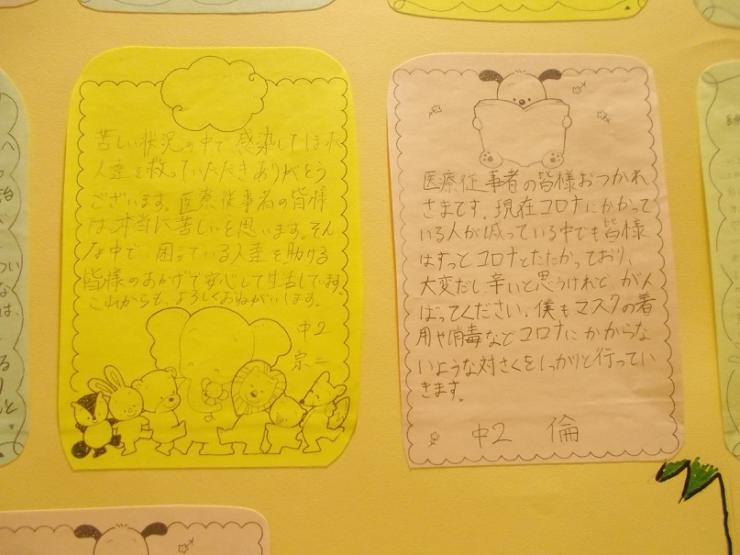 苦しい状況の中で感染してしまった
人達を救っていただきありがとう
ございます。医療従事者の皆様
は、本当に苦しいと思います。そん
な中で、困っている人達を助ける
皆様のおかげで安心して生活しています。
これからも、よろしくおねがいします。
中2
宗二
医療従事者の皆様おつかれ
さまです。現在コロナにかかって
いる人が減っている中でも皆様
はずっとコロナとたたかっており、
大変だし、辛いと思うけれど、がん
ばってください。僕もマスクの着
用や消毒などコロナにかからな
いような対さくをしっかりと行ってい
きます。
中2 倫